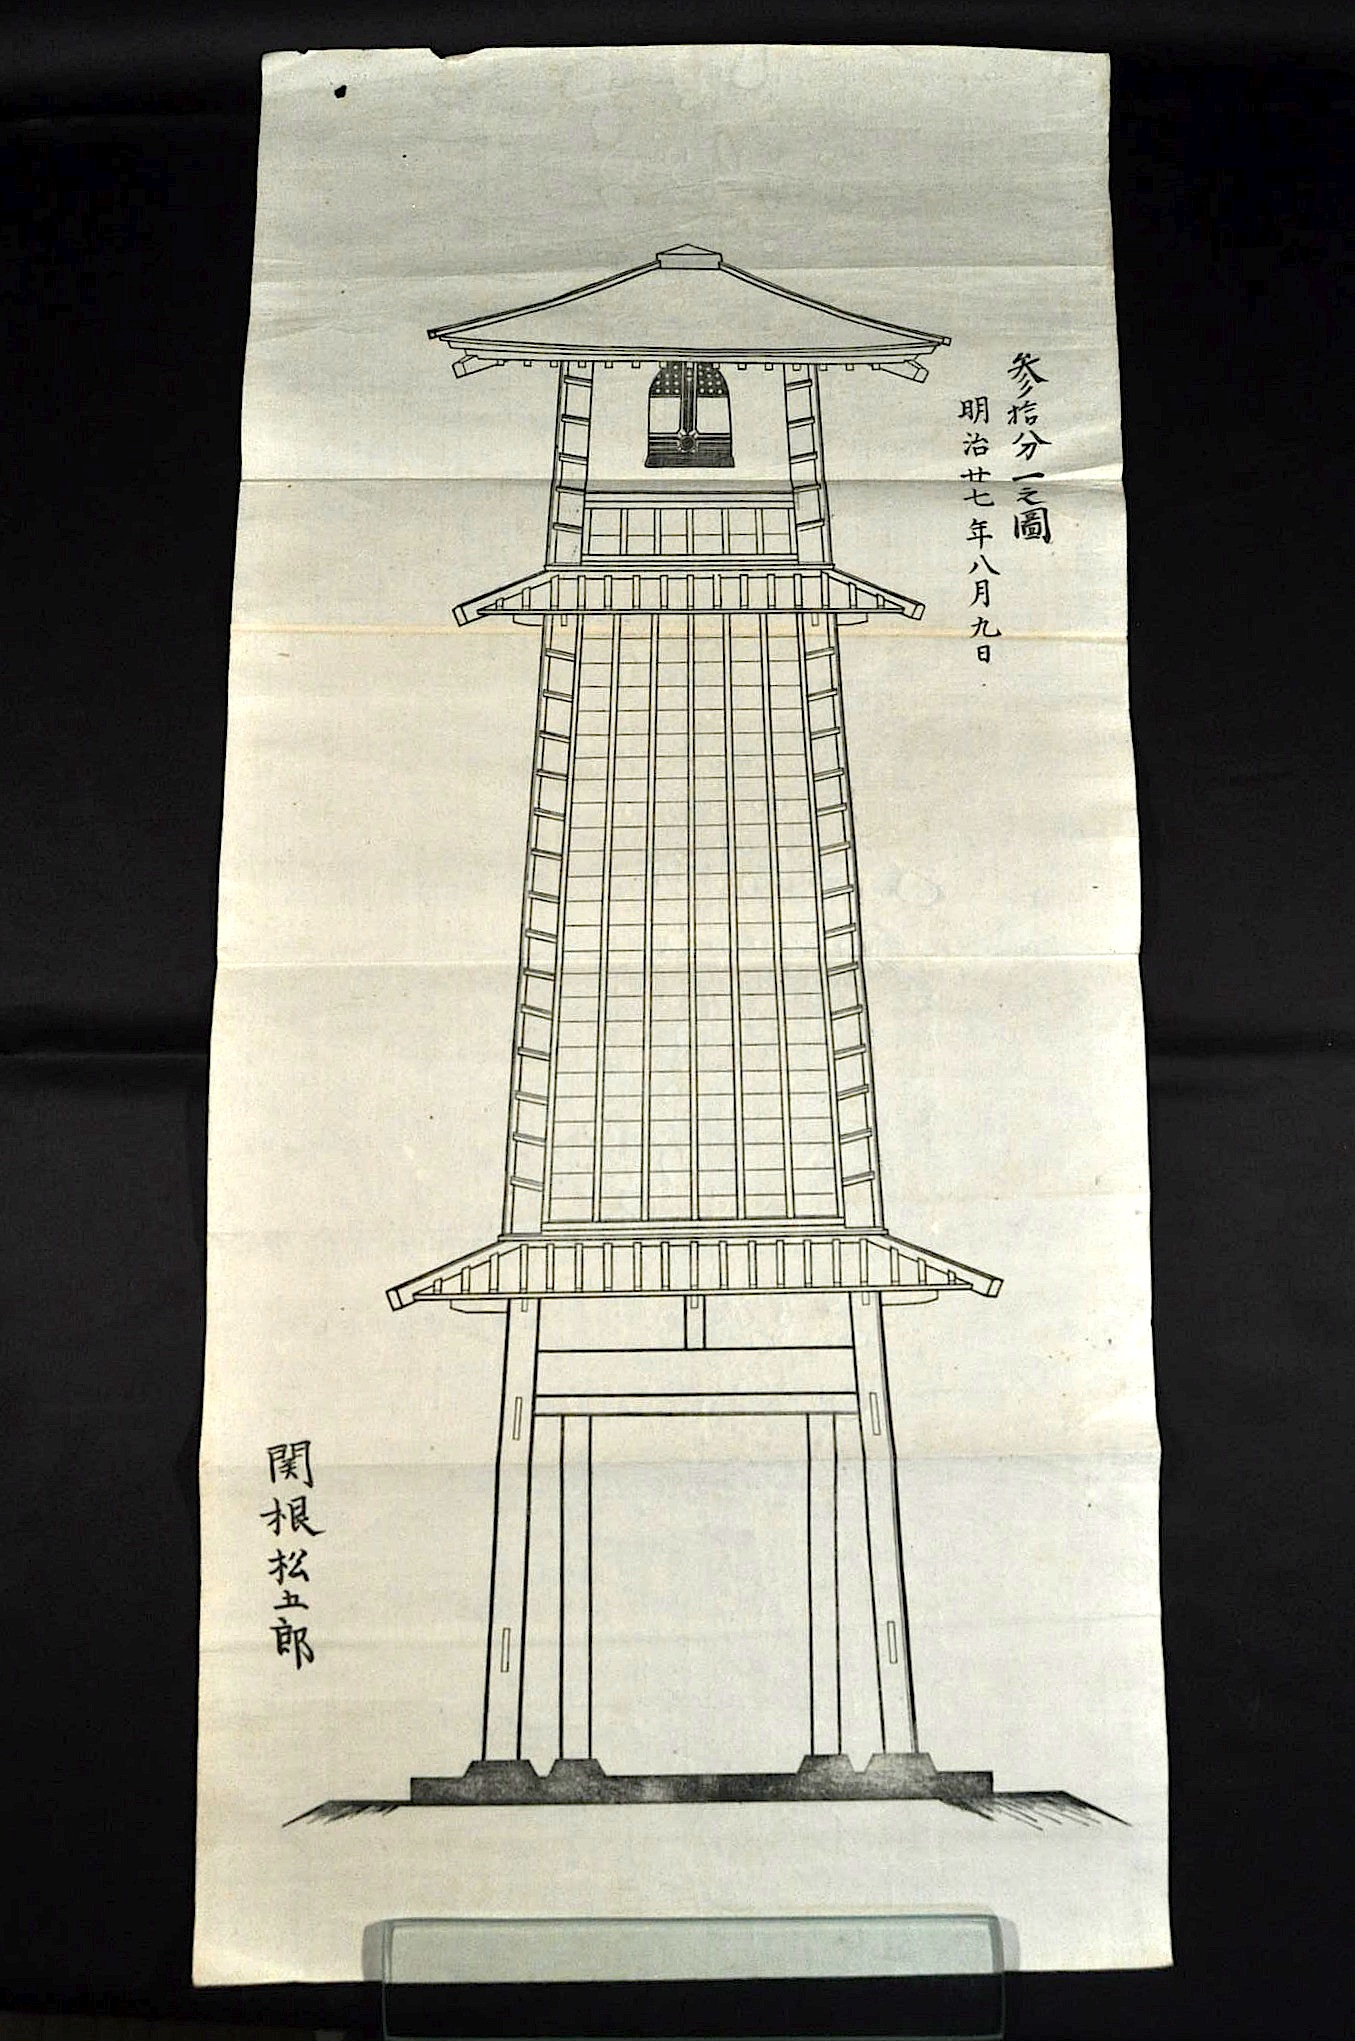 参拾分一之圖
明治廿七年八月九日
関根松五郎